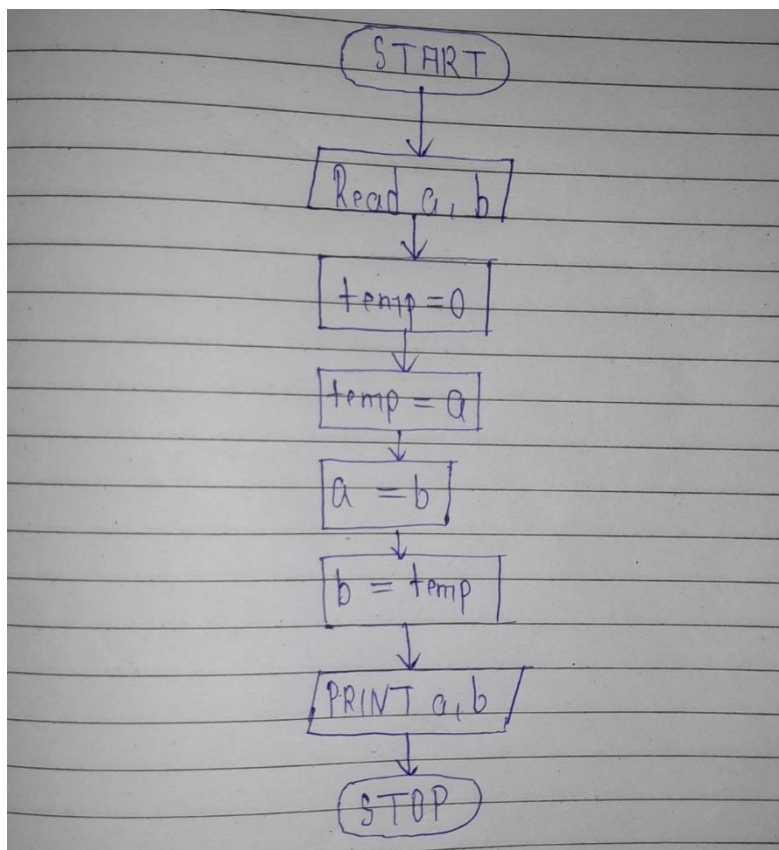 START
Read a, b
temp = 0
temp = a
a = b
b = temp
PRINT a, b
STOP